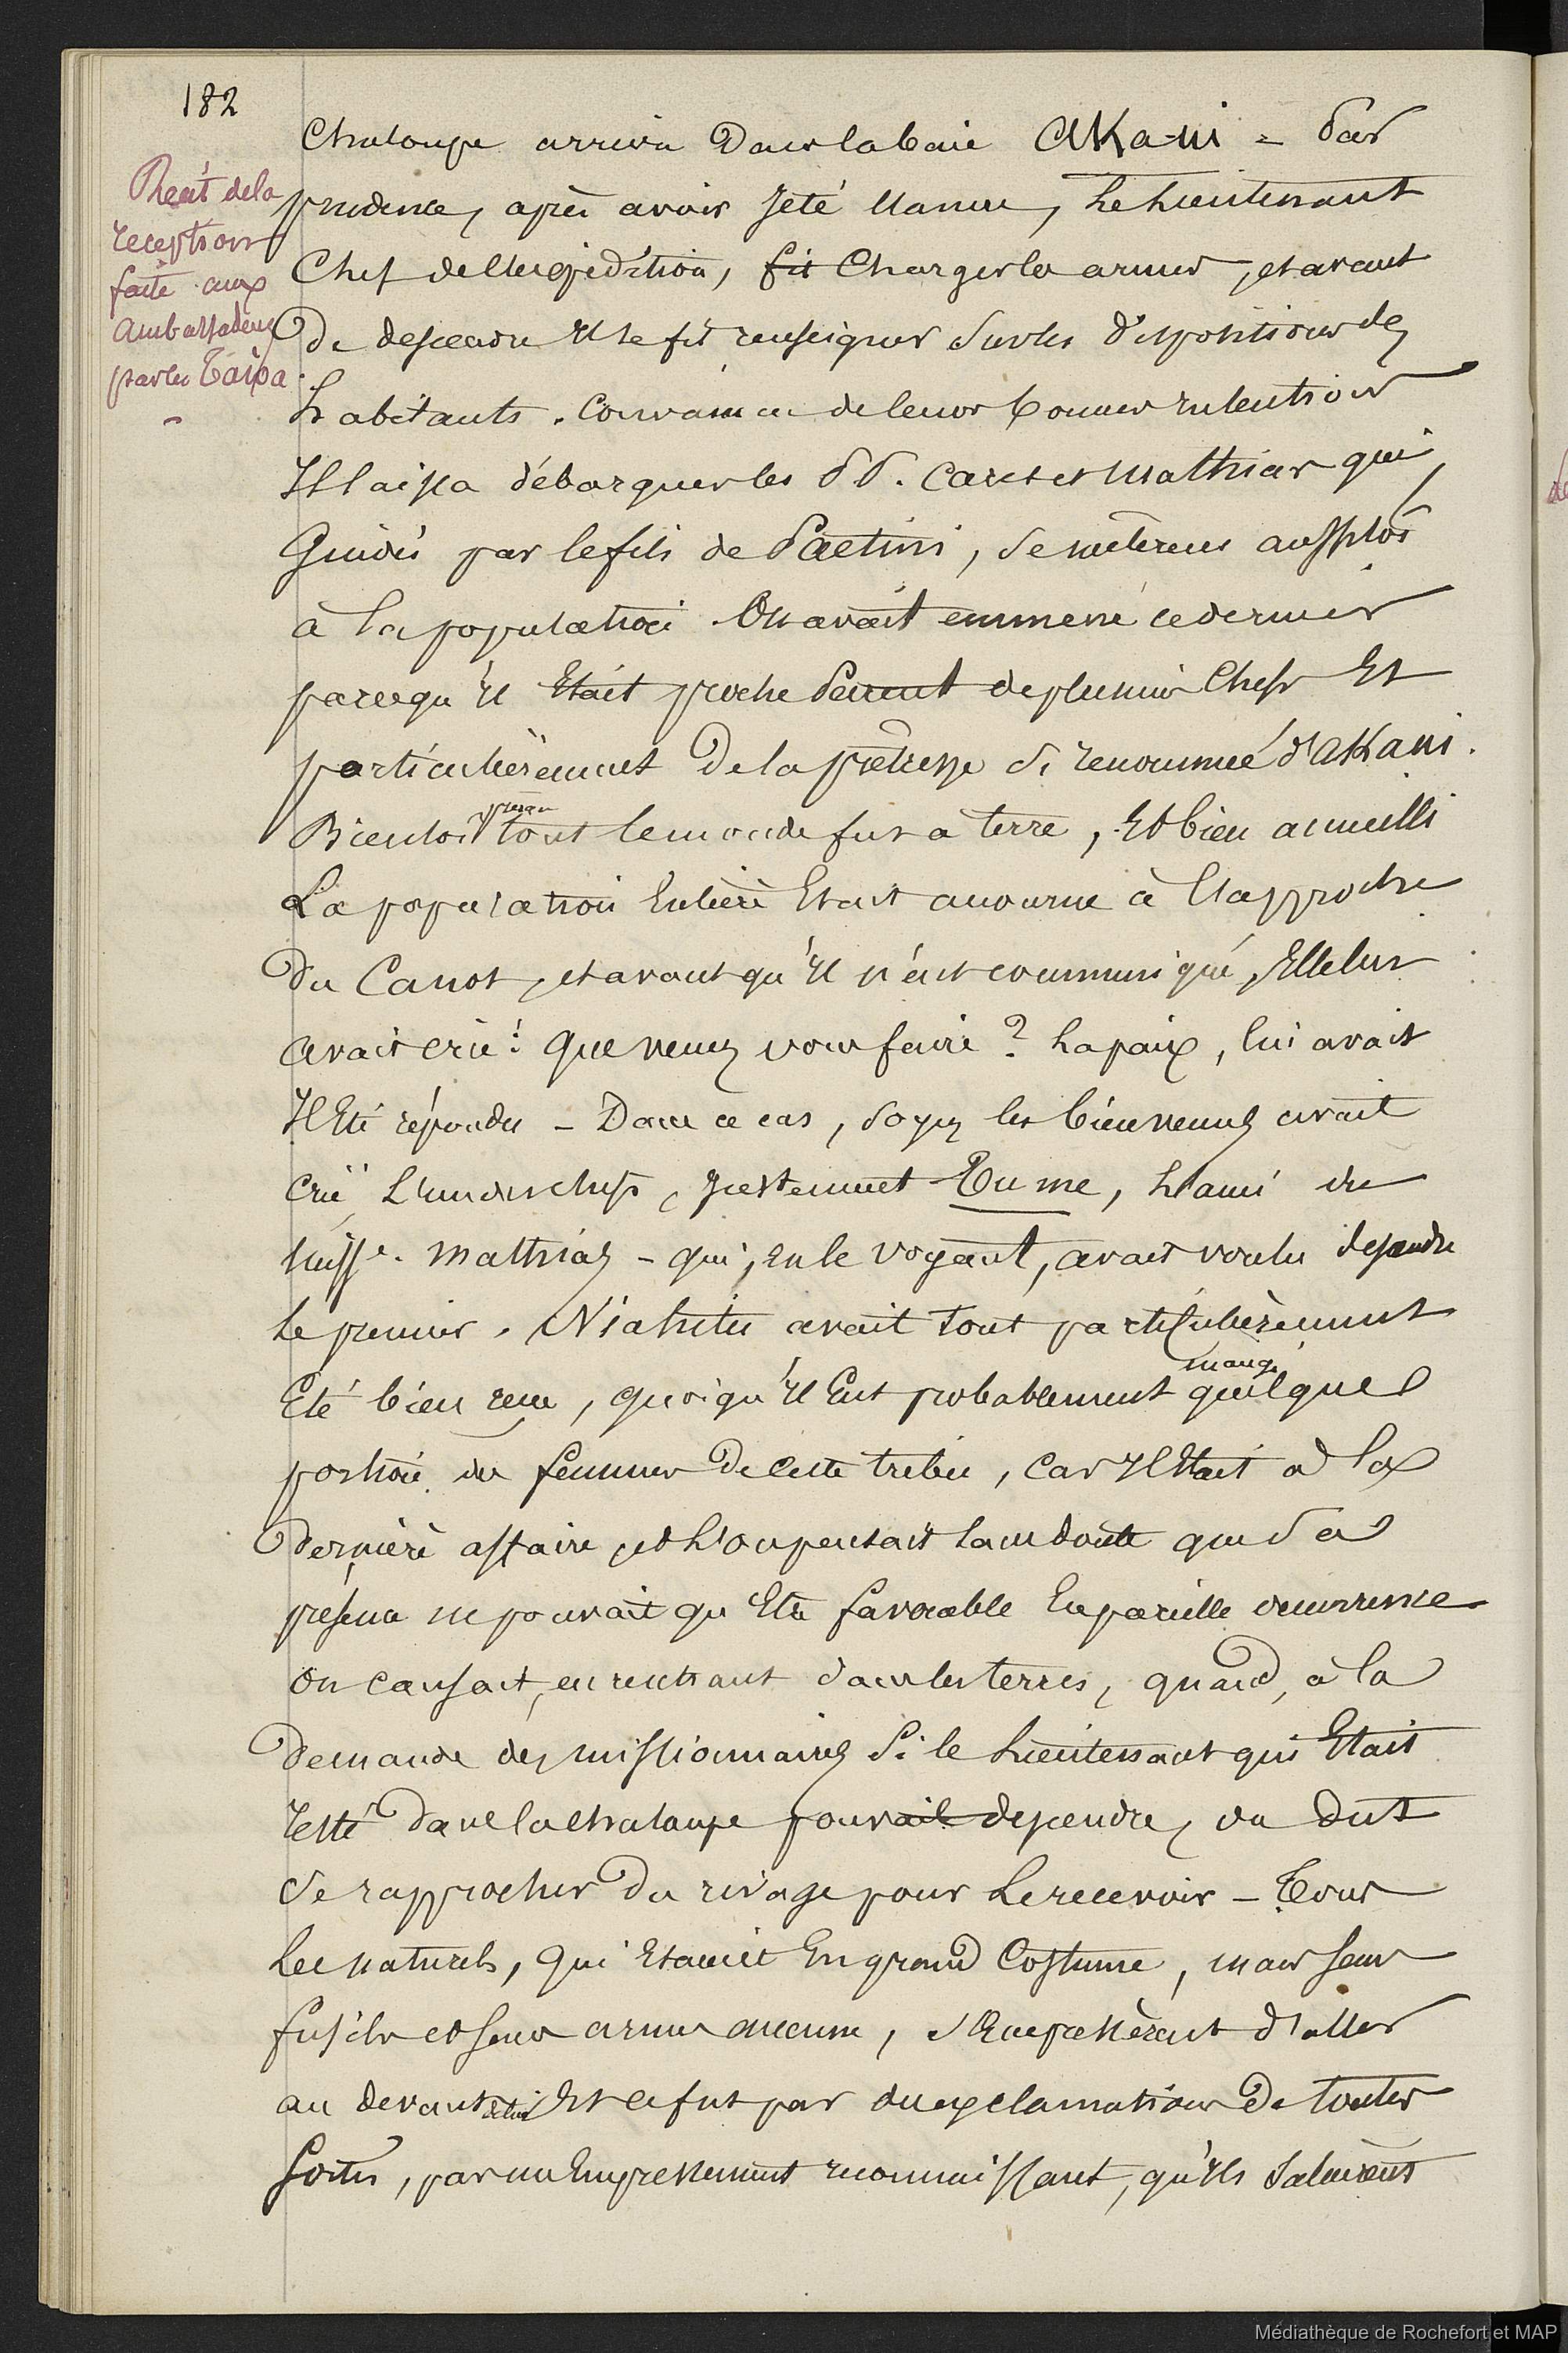 182
Récit de la
reception
faite aux
ambassadeurs
par les Taïpa
Chaloupe arriva Dans la baie AKani = Par
prudence, après avoir Jeté l'ancre, Le Lieutenant
Chef de l'expédition, fit Charger les armes, et avant
De descendre Il se fit renseigner sur les Dispositions des
habitants. Convaincu de leurs bonnes intentions
Il laissa débarquer les PP. Caret et Mathias qui,
Guidés par le fils de Paetini, se mêlèrent aussitôt
à la population. On avait emmené ce dernier
parcequ'il Etait proche Parent de plusieurs Chefs Et
particulièrement De la prêtresse si renommée d'AKani.
Bientôt presque tout le monde fut à terre, Et bien accueilli
La population Entière Etait accourue à l'approche
Du Canot, et avant qu'il n'eut communiqué, Elle lui
avait crié : Que venez vous faire ? La paix, lui avait
Il Eté répondu _ Dans ce cas, soyez les bienvenus avait
crié L'un des chefs, justement Tume, L'ami du
miss.e Mathias - qui, en le voyant, avait voulu descendre
le premier. Niahitu avait tout particulièrement
Eté bien reçu, quoiqu'il Eut probablement mangé quelque
portion des femmes De Cette tribu, Car Il Etait à la
Dernière affaire, et L'on pensait sans doute que Sa
présence ne pouvait qu'Etre favorable En pareille occurrence
On causait, en rentrant dans les terres, quand, à la
Demande des missionnaires Si le Lieutenant qui Etait
resté Dans la chaloupe pouvait descendre, on dut
Se rapprocher Du rivage pour Le recevoir _ Tous
Les naturels, Qui Etaient En grand Costume, mais sans
fusils et sans armes aucune, s'Empressèrent d'aller
au devant de lui Et ce fut par des exclamations De toutes
Sortes, par un Empressement reconnaissant, qu'ils saluèrent
Médiathèque de Rochefort et MAP